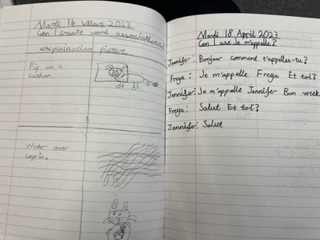 Mardi 14 Mars 2023
Can I create word associations
explanation picture
Pig on a
cushion.
Water over
lapin.
Mardi 18 April 2023
Can I use Je m'appelle?
Jennifer: Bonjour comment t'appelles-tu?
Freya: Je m'appelle Freya Et toi?
Jennifer: Je m'appelle Jennifer Bon week
Freya: Salut Et toi?
Jennifer: Salut